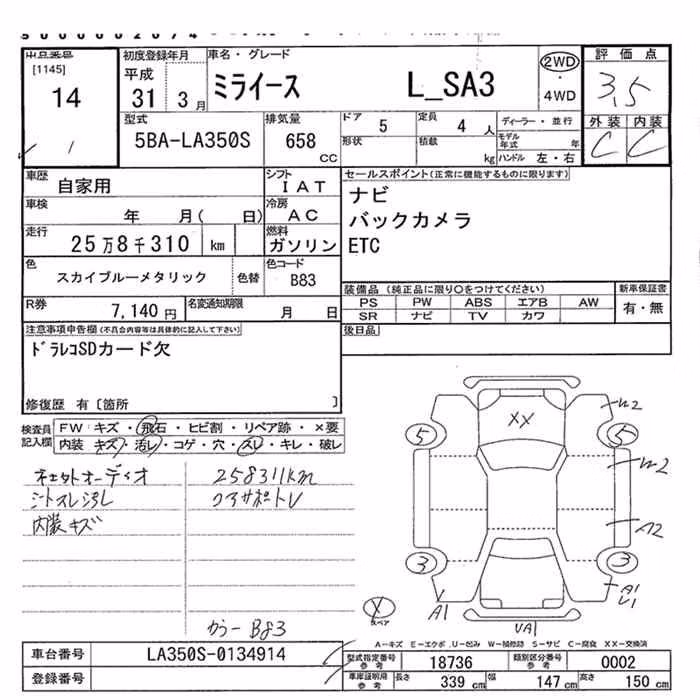 出品番号
[1145]
14
初度登録年月
平成
31 3月
車名・グレード
ミライース L_SA3
2WD
・
4WD
評価点
3.5
外装 内装
C C
型式
5BA-LA350S
排気量
658 cc
ドア 5
定員 4 人
ディーラー・並行
形状
積載 kg
モデル年式 年
ハンドル 左・右
車歴
自家用
シフト
IAT
セールスポイント(正常に機能するものに限ります)
ナビ
バックカメラ
ETC
車検
年 月( 日)
冷房
AC
走行
25万8千310 km
燃料
ガソリン
色
スカイブルーメタリック
色替
色コード
B83
装備品 (純正品に限り○をつけてください)
新車保証書
PS PW ABS エアB AW
SR ナビ TV カワ
有・無
R券
7,140円
名変通知期限
月 日
後日品
注意事項申告欄(不具合内容等は具体的に記入して下さい)
ドラレコSDカード欠
修復歴 有〔箇所 〕
検査員記入欄
FW キズ・飛石・ヒビ割・リペア跡・×要
内装 キズ・汚レ・コゲ・穴・スレ・キレ・破レ
ネセットオーディオ
258311km
シートスレ汚レ
クアサポートレ
内装キズ
カラー B83
XX
W2
5
5
W2
A2
3
3
A1
A1
U1
UA1
スペア
A-キズ E-エクボ U-凹み W-補修跡 S-サビ C-腐食 XX-交換済
車台番号
LA350S-0134914
型式指定番号 参考
18736
類別区分番号 参考
0002
登録番号
車庫証明用 参考
長さ 339 cm
幅 147 cm
高さ 150 cm